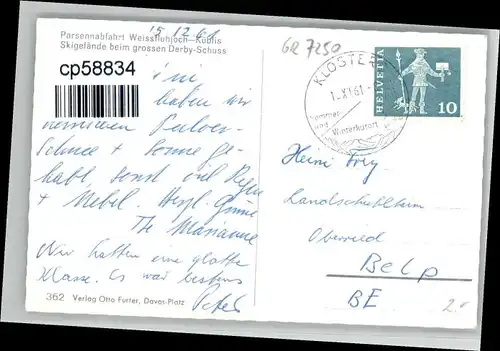 Parsennabfahrt Weissfluhjoch-Küblis
Skigelände beim grossen Derby-Schuss
15 12 61
cp58834
haben wir
Pulver-
Schnee + Sonne ge-
habt, sonst viel Regen
+ Nebel. Herzl. Grüsse
Marianne
Wir hatten eine glatte
Klasse. Es war bestens
Peter
362 Verlag Otto Furter, Davos-Platz
GR 7250
KLOSTERS
1.XI.61
Sommer-
und Winterkurort
HELVETIA
10
Heini Frey
Landschulheim
Oberried
Belp
BE
2.-